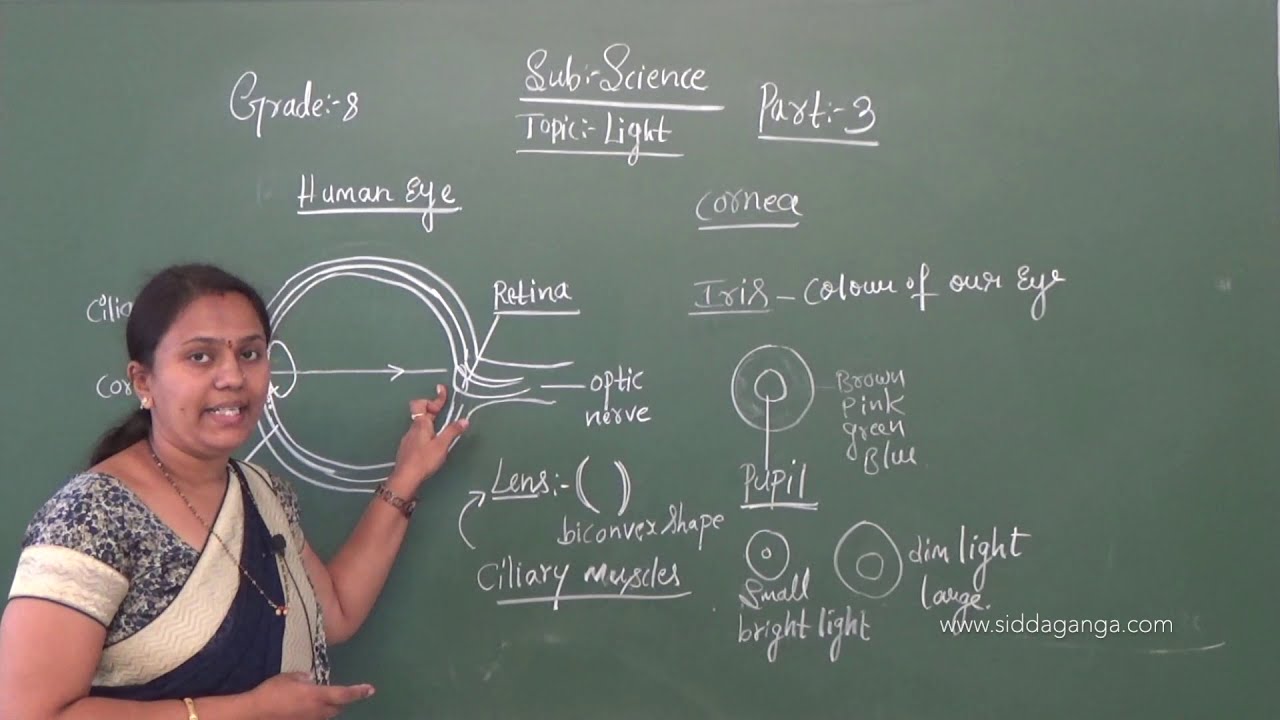 Sub:-Science
Grade:-8
Topic:- Light
Part:-3
Human Eye
Cornea
Retina
Iris - Colour of our Eye
optic
nerve
Brown
Pink
green
Blue
Pupil
Lens:- ( )
biconvex shape
Ciliary Muscles
Small
bright light
dim light
large.
www.siddaganga.com